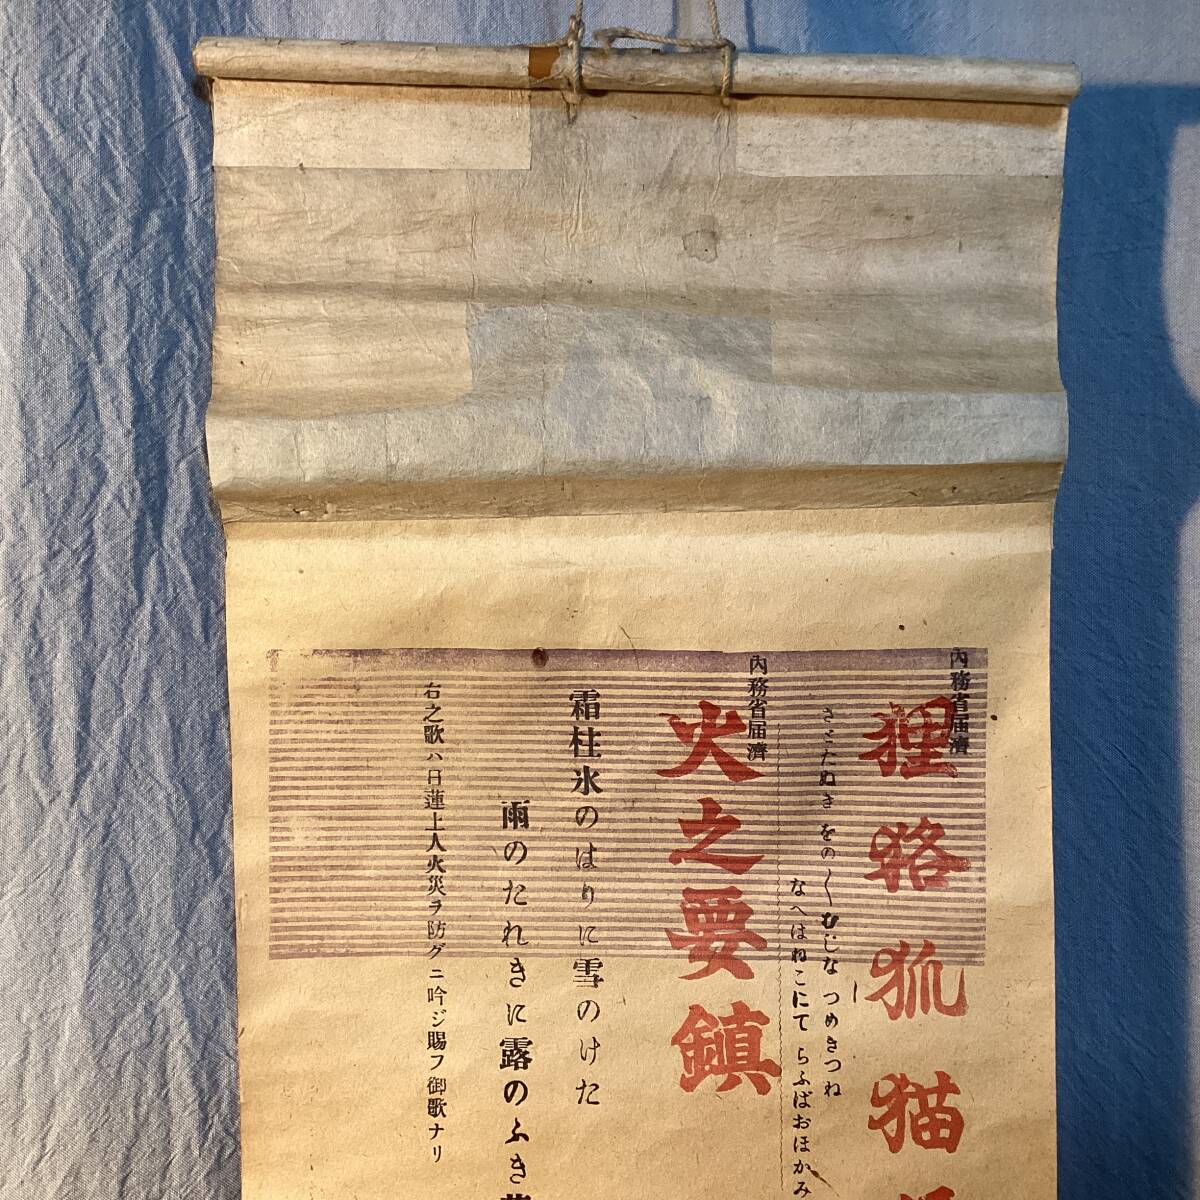 內務省届濟
狸狢狐猫
さとたぬき をの〱 むじな つめきつね
なへはねこにて らふばおほかみ
內務省届濟
火之要鎮
霜柱氷のはりに雪のけた
雨のたれきに露のふき
右之歌ハ日蓮上人火災ヲ防グニ吟ジ賜フ御歌ナリ